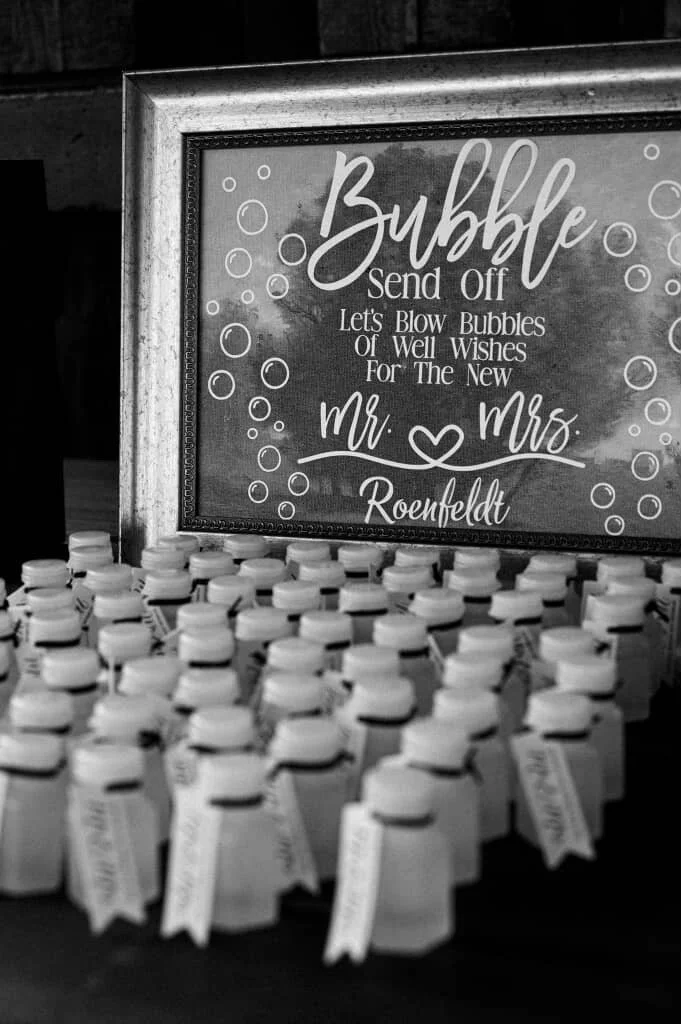 Bubble
Send Off
Let's Blow Bubbles
Of Well Wishes
For The New
Mr. Mrs.
Roenfeldt